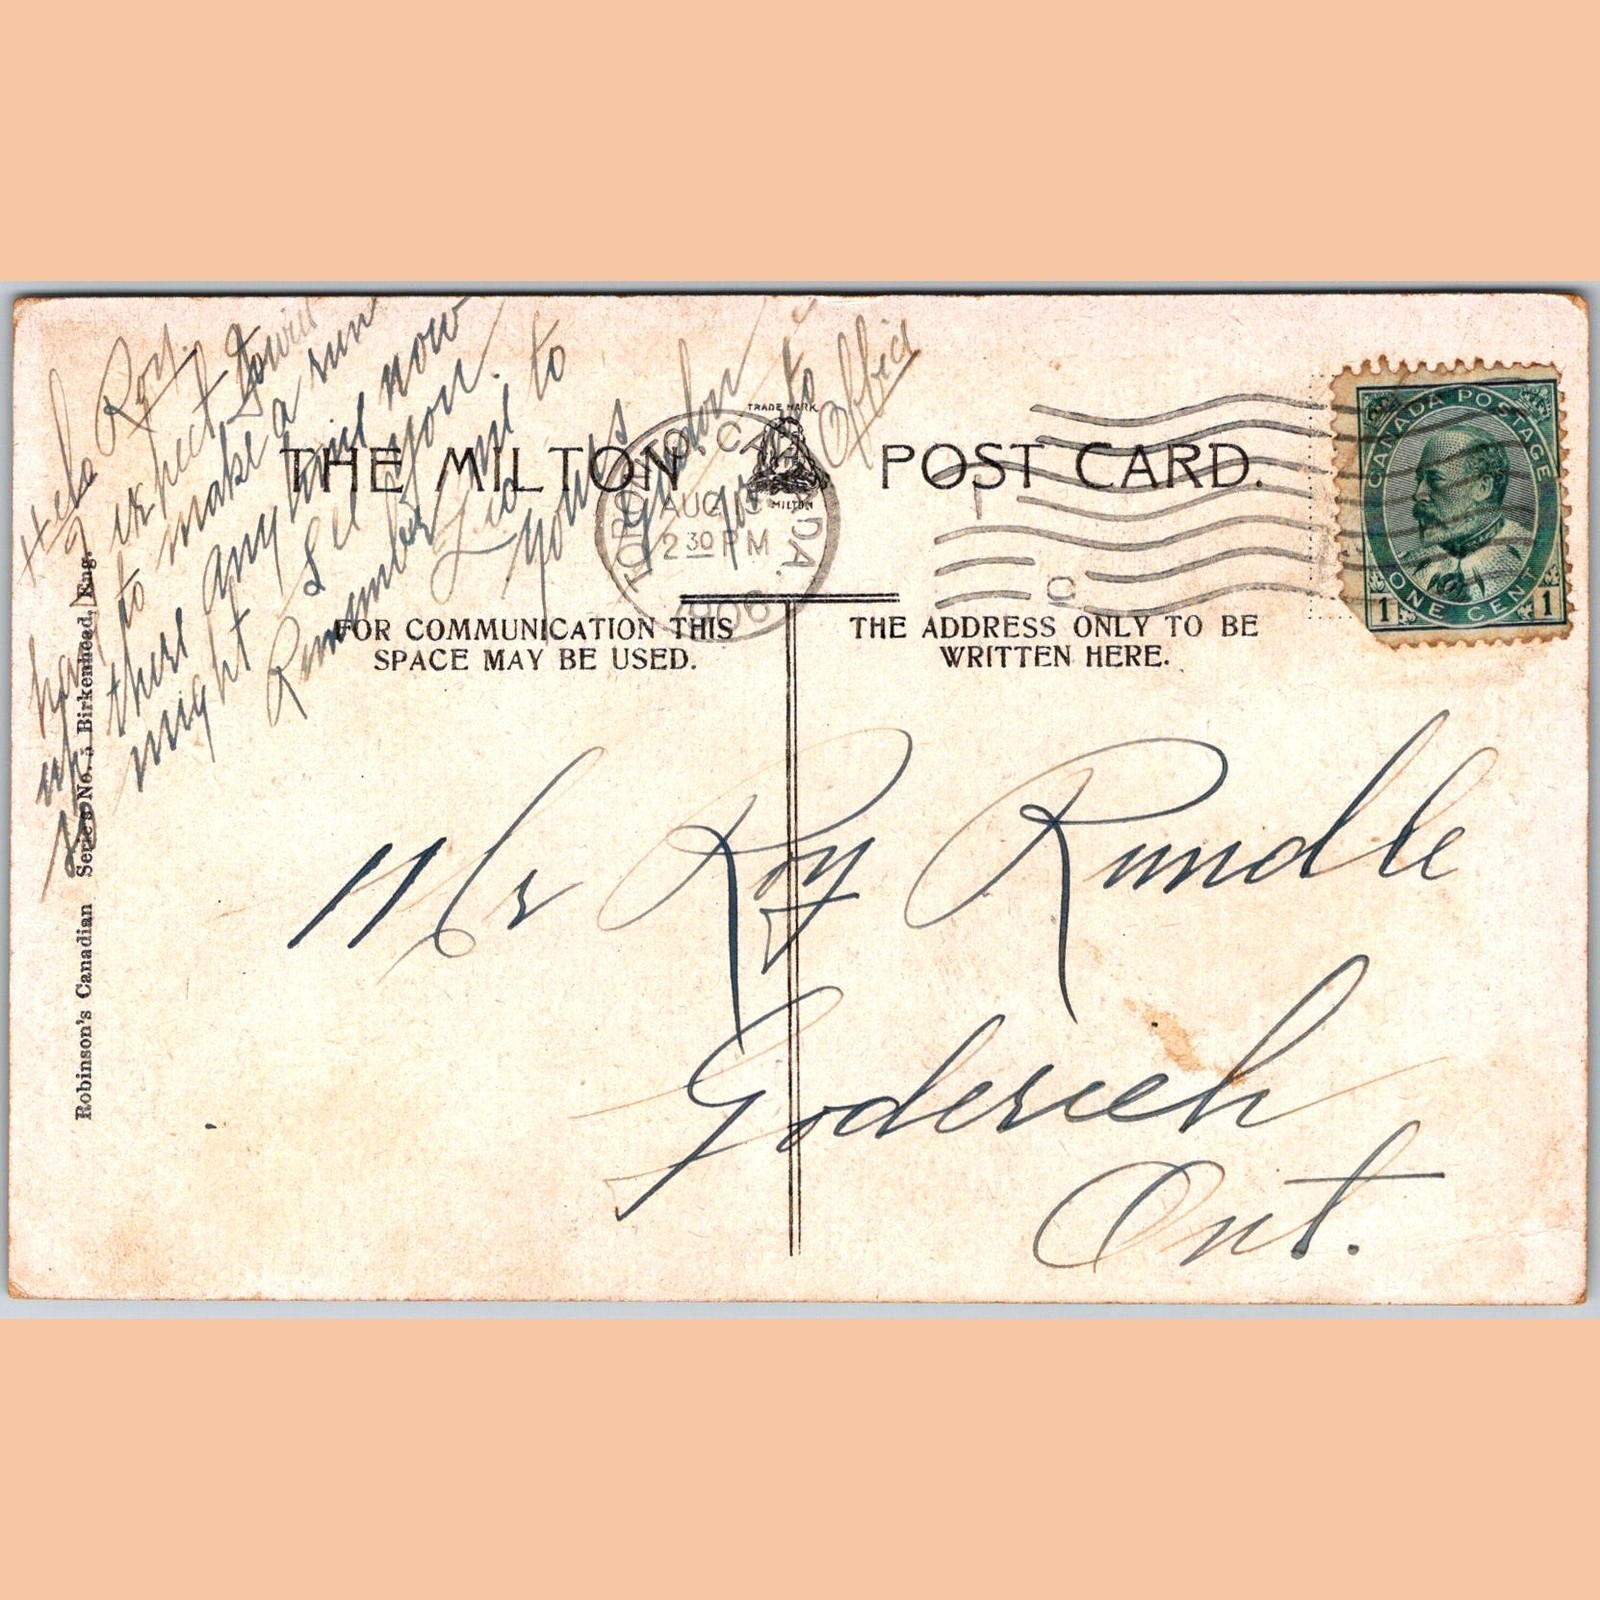 Hello Roy.
I expect you will
have to make a run
up there any time now
So might see you.
Remember me to
Yours
Gordon
Toronto
Office
TRADE MARK
THE MILTON POST CARD.
MILTON
TORONTO, CANADA.
AUG
2 30 PM
1906
CANADA POSTAGE
1 ONE CENT 1
FOR COMMUNICATION THIS
SPACE MAY BE USED.
THE ADDRESS ONLY TO BE
WRITTEN HERE.
Mr Roy Rundle
Goderich
Ont.
Robinson's Canadian Series No. 5 Birkenhead, Eng.